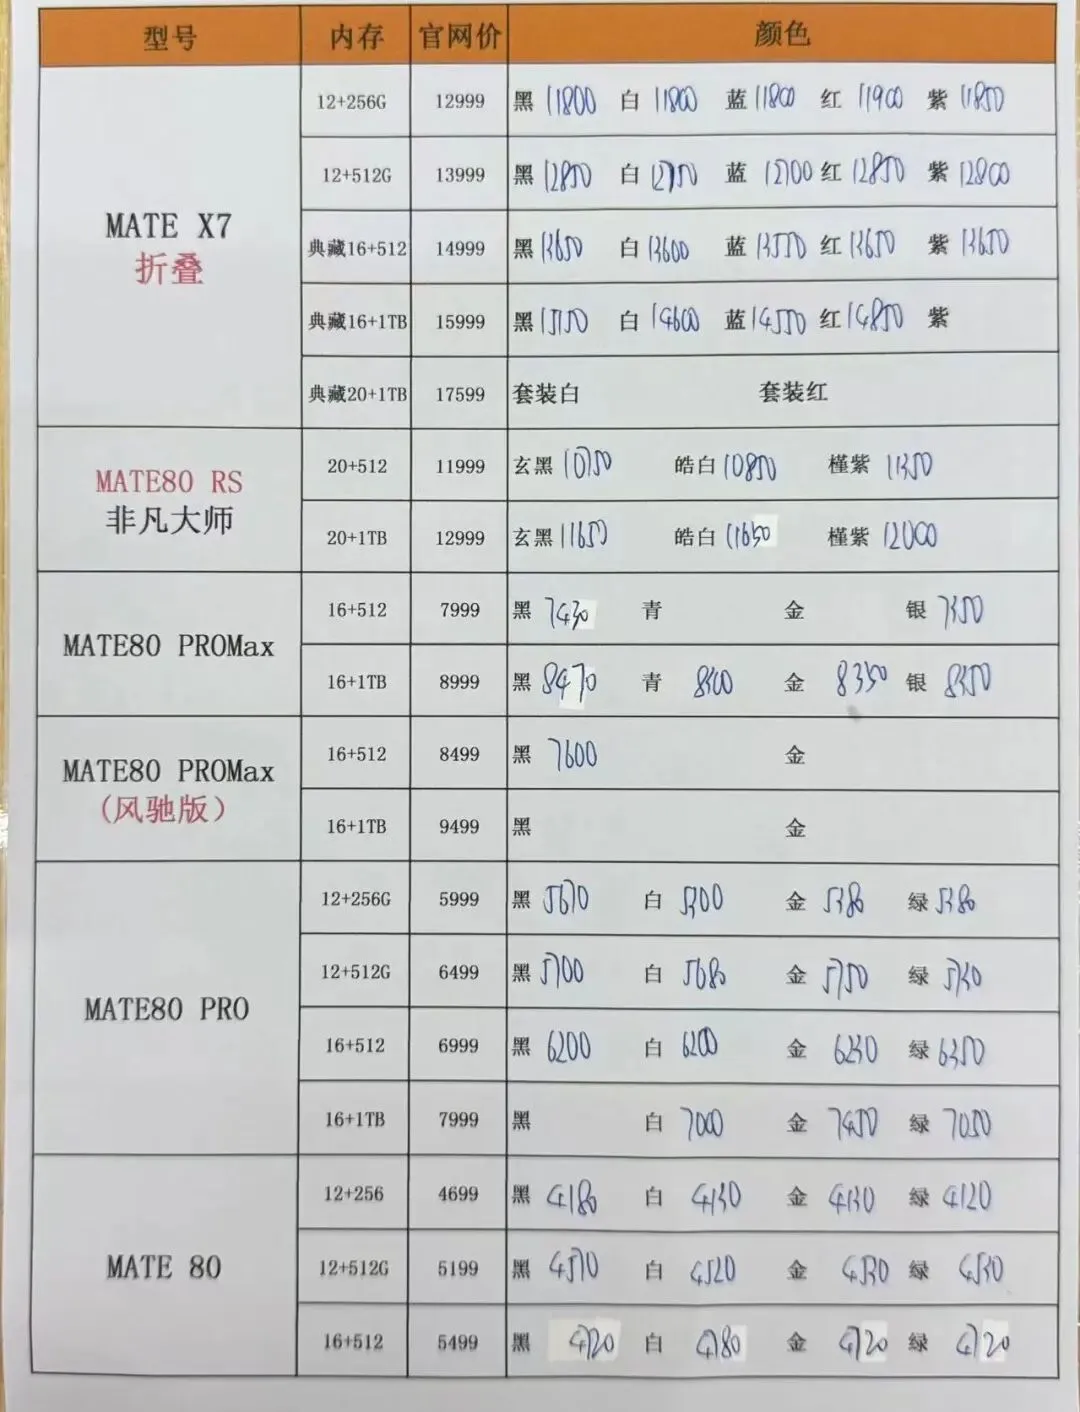 型号 内存 官网价 颜色
MATE X7
折叠
12+256G 12999 黑 11800 白 11800 蓝 11800 红 11900 紫 11850
12+512G 13999 黑 12850 白 12750 蓝 12700 红 12850 紫 12800
典藏16+512 14999 黑 13650 白 13600 蓝 13550 红 13650 紫 13650
典藏16+1TB 15999 黑 15150 白 14600 蓝 14550 红 14850 紫
典藏20+1TB 17599 套装白 套装红
MATE80 RS
非凡大师
20+512 11999 玄黑 10750 皓白 10850 槿紫 11350
20+1TB 12999 玄黑 11650 皓白 11650 槿紫 12000
MATE80 PROMax
16+512 7999 黑 7430 青 金 银 7350
16+1TB 8999 黑 8470 青 8300 金 8350 银 8350
MATE80 PROMax
(风驰版)
16+512 8499 黑 7600 金
16+1TB 9499 黑 金
MATE80 PRO
12+256G 5999 黑 白 5300 金 5380 绿 5380
12+512G 6499 黑 5700 白 5680 金 5750 绿 5730
16+512 6999 黑 6200 白 6200 金 6230 绿 6350
16+1TB 7999 黑 白 7000 金 7450 绿 7050
MATE 80
12+256 4699 黑 4180 白 4130 金 4130 绿 4120
12+512G 5199 黑 4570 白 4520 金 4530 绿 4530
16+512 5499 黑 4720 白 4780 金 4720 绿 4720